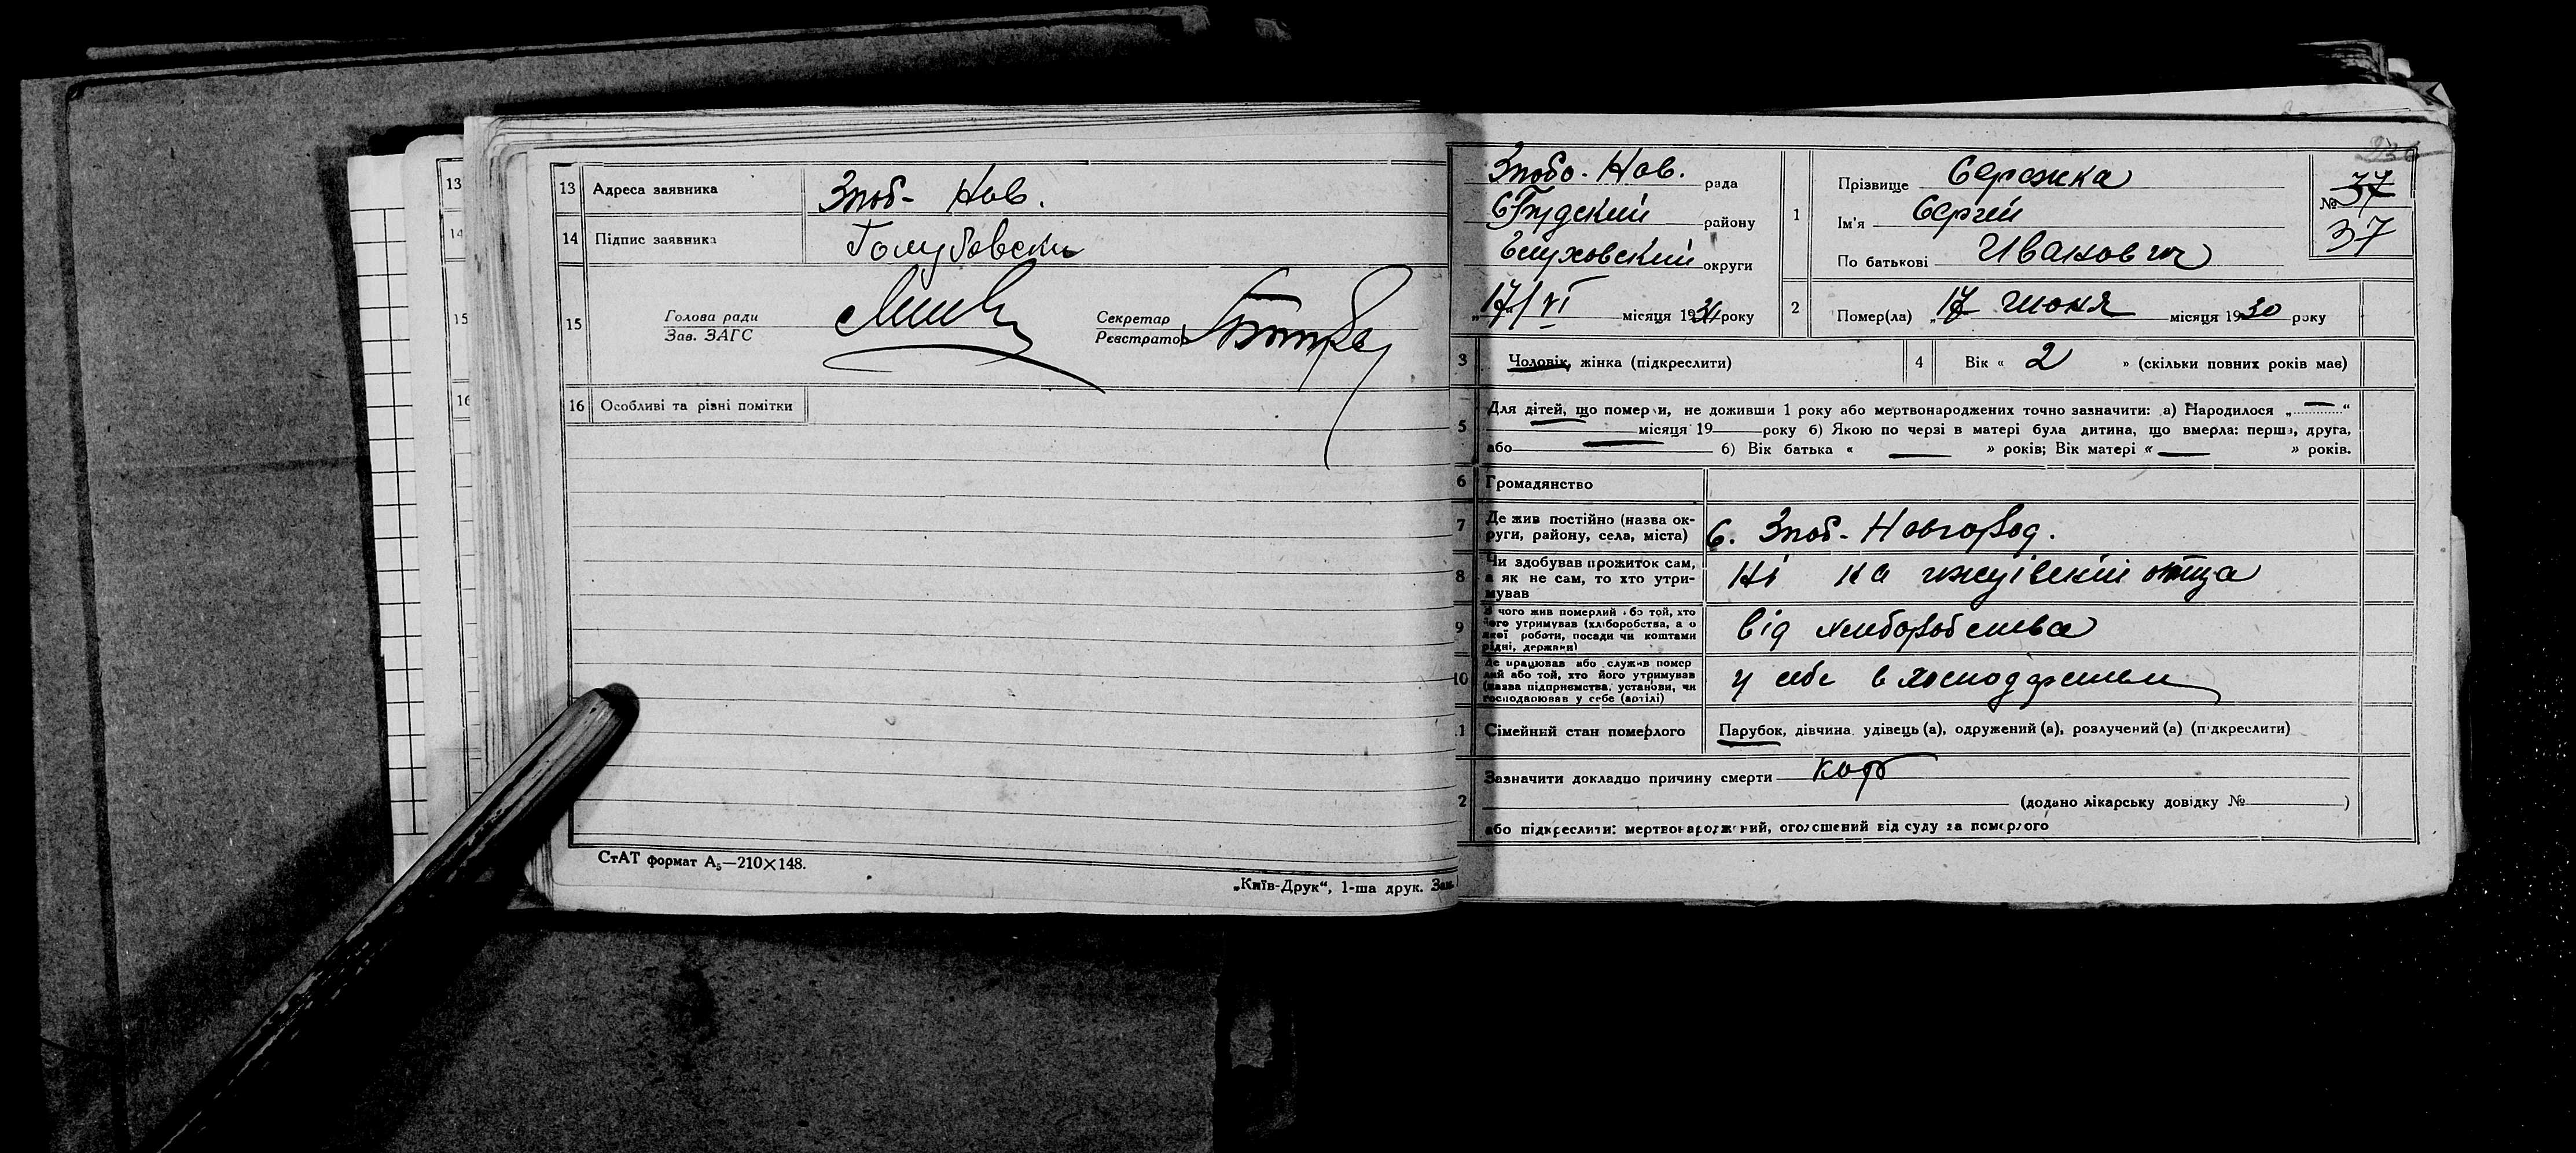 13
14
15
16
13 Адреса заявника Зноб- Нов.
14 Підпис заявника Голубовски
15 Голова ради
Зав. ЗАГС
Секретар
Реєстратор
16 Особливі та різні помітки
СтАТ формат А5—210×148.
„Київ-Друк“, 1-ша друк. Зам.
Знобо- Нов. рада
С-Будский району
Глуховский округи
„17/VI місяця 19 року
1 Прізвище Сережка
Ім'я Сергей
По батькові Иванович
№ 37
37
2 Помер(ла) „17 июня місяця 1930 року
3 Чоловік, жінка (підкреслити)
4 Вік « 2 » (скільки повних років має)
5 Для дітей, що померли, не доживши 1 року або мертвонароджених точно зазначити: а) Народилося „—“
місяця 19 року б) Якою по черзі в матері була дитина, що вмерла: перша, друга,
або б) Вік батька « — » років; Вік матері « — » років.
6 Громадянство
7 Де жив постійно (назва округи, району, села, міста) С. Зноб- Новгород.
8 Чи здобував прожиток сам, а як не сам, то хто утримував Ні на отца
9 З чого жив померлий або той, хто його утримував (хліборобства, а о якої роботи, посади чи коштами рідні, держави) від хлиборобства
10 Де працював або служив померлий або той, хто його утримував (назва підприємства, установи, чи господарював у себе (артілі) у себе в господарстви
11 Сімейний стан померлого Парубок, дівчина, удівець (а), одружений (а), розлучений (а) (підкреслити)
2 Зазначити докладно причину смерти корь
(додано лікарську довідку № )
або підкреслити: мертвонароджений, оголошений від суду за померлого